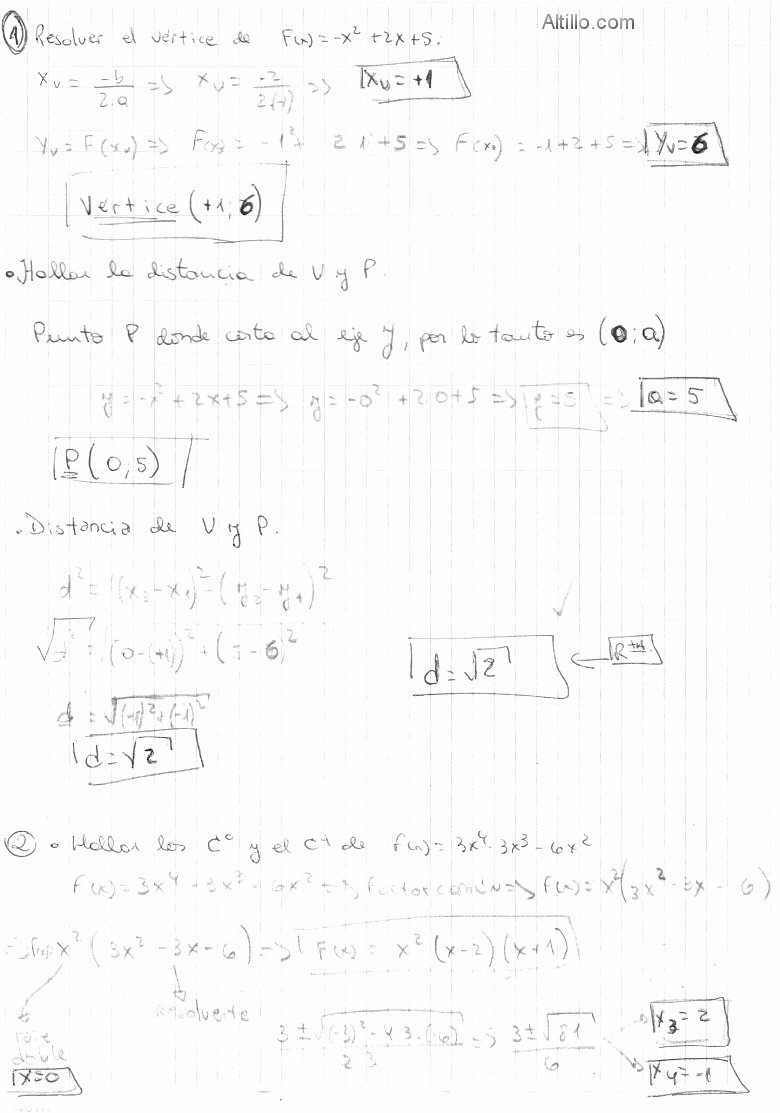 Altillo.com
1 Resolver el vértice de F(x) = -x² + 2x + 5.
Xv = -b / 2.a => Xv = -2 / 2(-1) => Xv = +1
Yv = F(xv) => F(xv) = -1² + 2 1 + 5 => F(xv) = -1 + 2 + 5 => Yv = 6
Vértice (+1; 6)
• Hallar la distancia de V y P.
Punto P donde corta al eje y, por lo tanto es (0; a)
y = -x² + 2x + 5 => y = -0² + 2 0 + 5 => y = 5 => a = 5
P (0, 5)
. Distancia de V y P.
d² = (x₂ - x₁)² - (y₂ - y₁)²
√d² = (0 - (+1))² + (5 - 6)²
d = √2 <- Rta.
d = √(-1)² + (-1)²
d = √2
2 • Hallar los C⁰ y el C⁺ de f(x) = 3x⁴ - 3x³ - 6x²
F(x) = 3x⁴ - 3x³ - 6x² => Factor común => f(x) = x² (3x² - 3x - 6)
x² (3x² - 3x - 6) => F(x) = x² (x-2) (x+1)
raíz doble
x = 0
resolvente
3 ± √(-3)² - 4 3 . (-6) / 2 3 => 3 ± √81 / 6
x₃ = 2
x₄ = -1